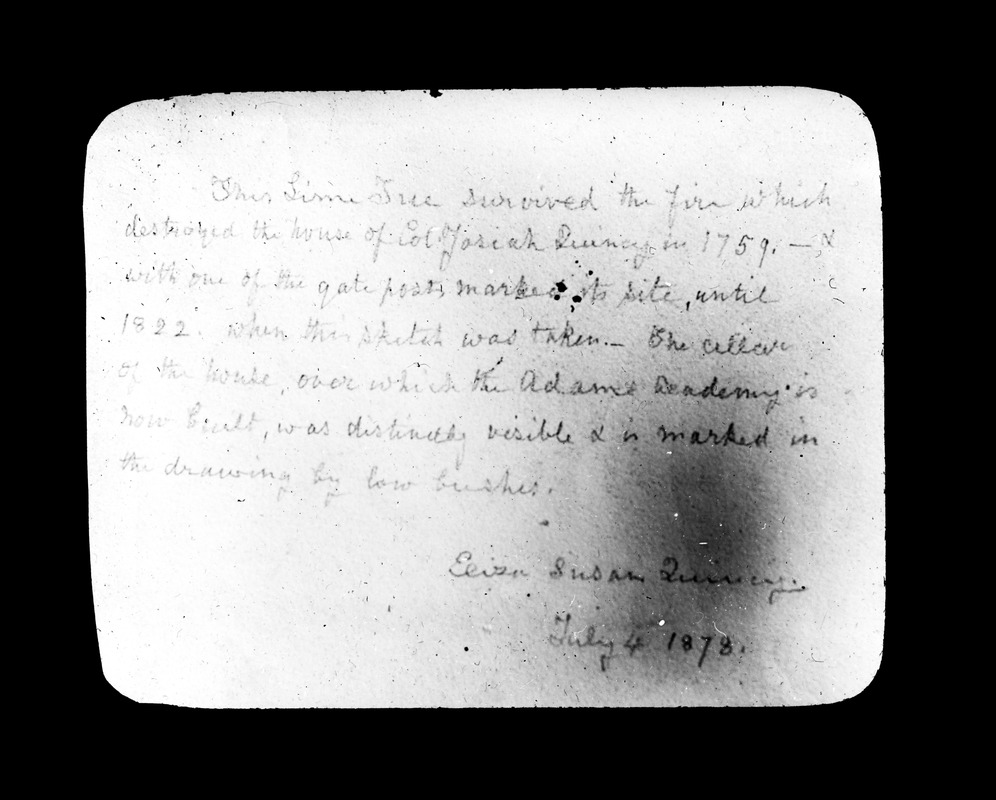 This Lime Tree survived the fire which
destroyed the house of Col. Josiah Quincy in 1759. — &
with one of the gate posts marked its site, until
1822. when this sketch was taken. — The cellar
of the house, over which the Adams Academy is
now built, was distinctly visible & is marked in
the drawing by low bushes.
Eliza Susan Quincy.
July 4 1878.